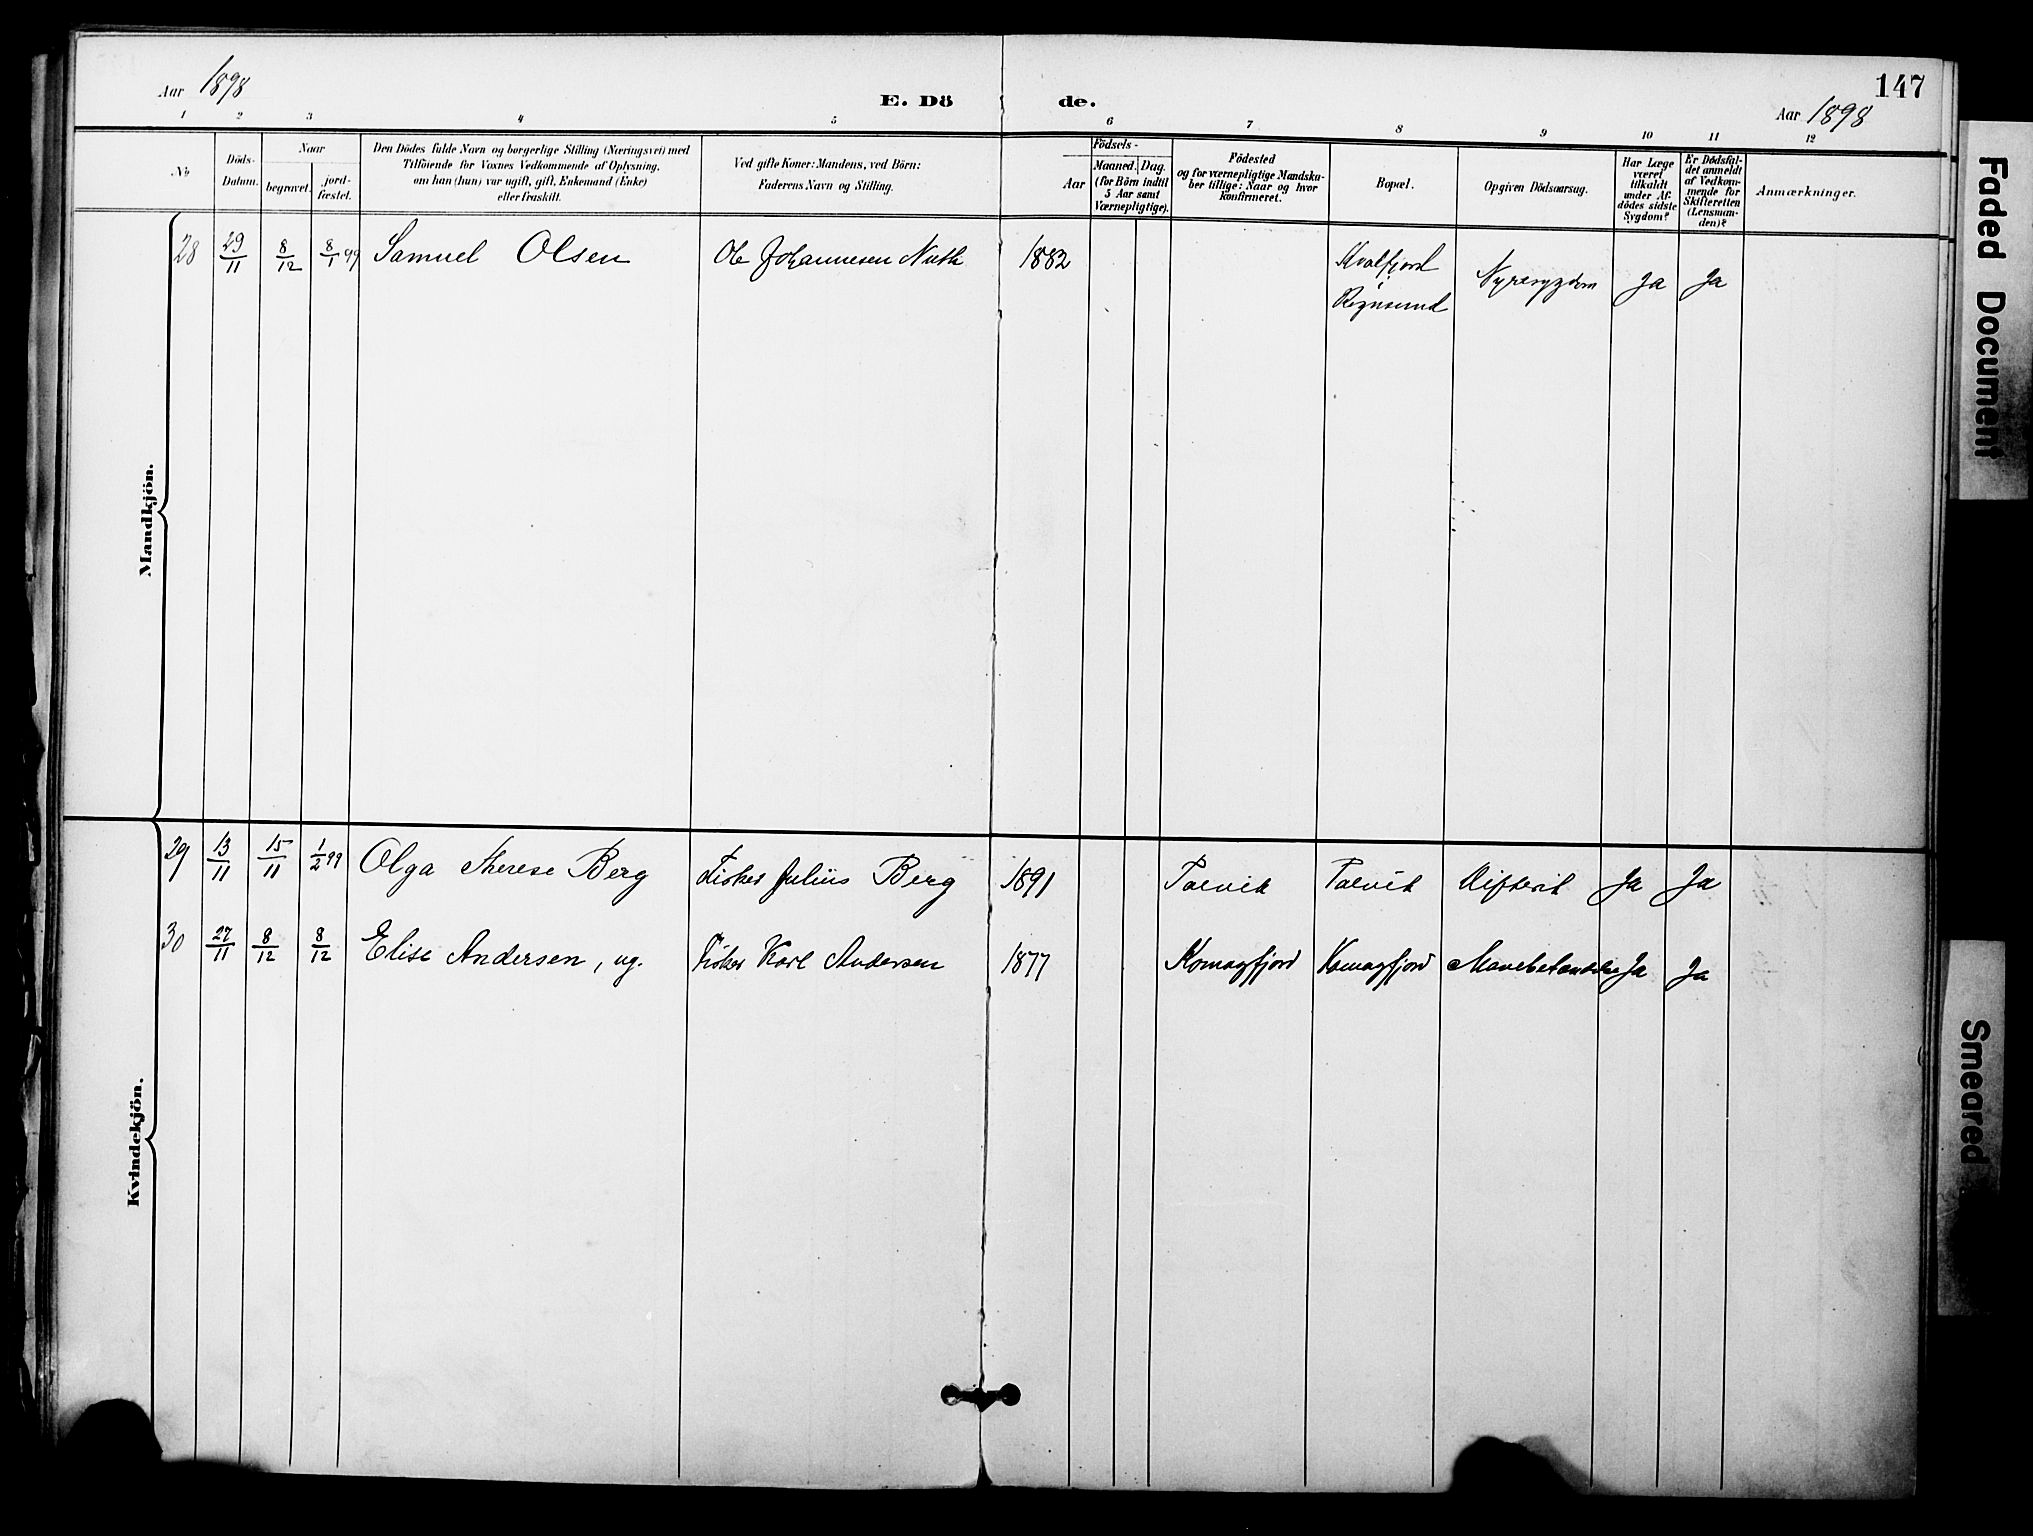 147
Aar 1898
E. Dö de.
Aar 1898
1 2 3 4 5 6 7 8 9 10 11 12
No
Döds-Datum.
Naar
begravet.
jord-fæstet.
Den Dödes fulde Navn og borgerlige Stilling (Næringsvei) med
Tilföiende for Voxnes Vedkommende af Oplysning,
om han (hun) var ugift, gift, Enkemand (Enke)
eller fraskilt.
Ved gifte Koner: Mandens, ved Börn:
Faderens Navn og Stilling.
Födsels-
Aar
Maaned. Dag.
(for Börn indtil
5 Aar samt
Værnepligtige).
Födested
og for værnepligtige Mandsku-
ber tillige: Naar og hvor
konfirmeret.
Bopæl.
Opgiven Dödsaarsag.
Har Læge
været
tilkaldt
under Af-
dödes sidste
Sygdom?
Er Dödsfal-
det anmeldt
af Vedkom-
mende for
Skifteretten
(Lensman-
den)?
Anmærkninger.
Mandkjön.
28 29/11 8/12 8/1 99 Samuel Olsen Ole Johannesen 1882 Kvalfjord Nyresygdom Ja Ja
Rognsund
Kvindekjön.
29 13/11 15/11 1/2 99 Olga Therese Berg Fisker Julius Berg 1891 Talvik Talvik Difterit Ja Ja
30 27/11 8/12 8/12 Elise Andersen, ug. Fisker Karl Andersen 1877 Komagfjord Komagfjord Mavebetændelse Ja Ja
Faded Document
Smeared